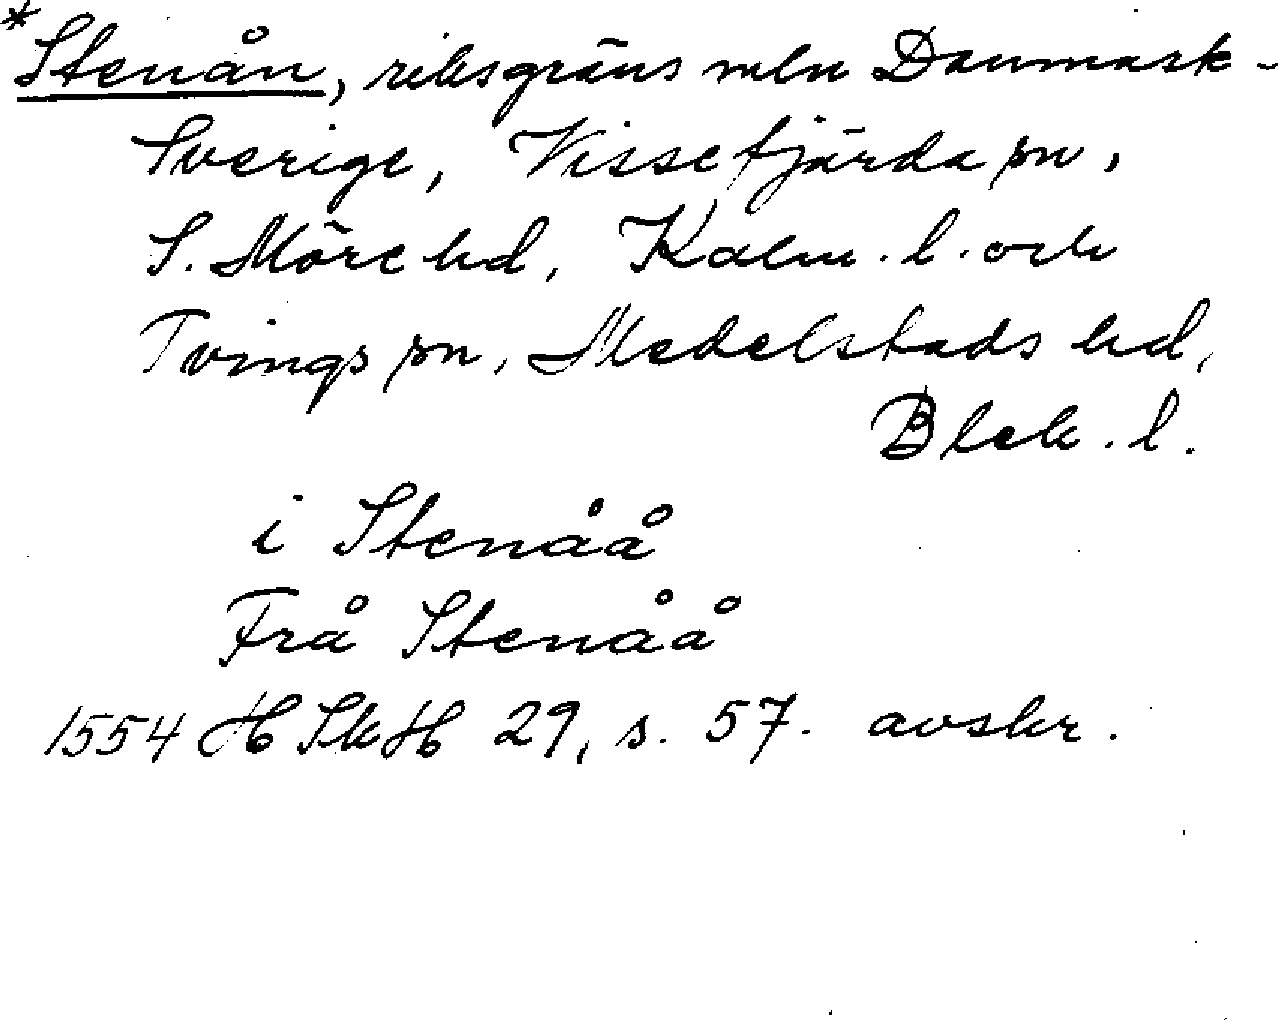 *Stenån, riksgräns mln Danmark-
Sverige, Vissefjärda sn,
S. Möre hd, Kalm. l. och
Tvings sn, Medelstads hd,
Blek. l.
i Stenåå
Frå Stenåå
1554 HSkH 29, s. 57. avskr.